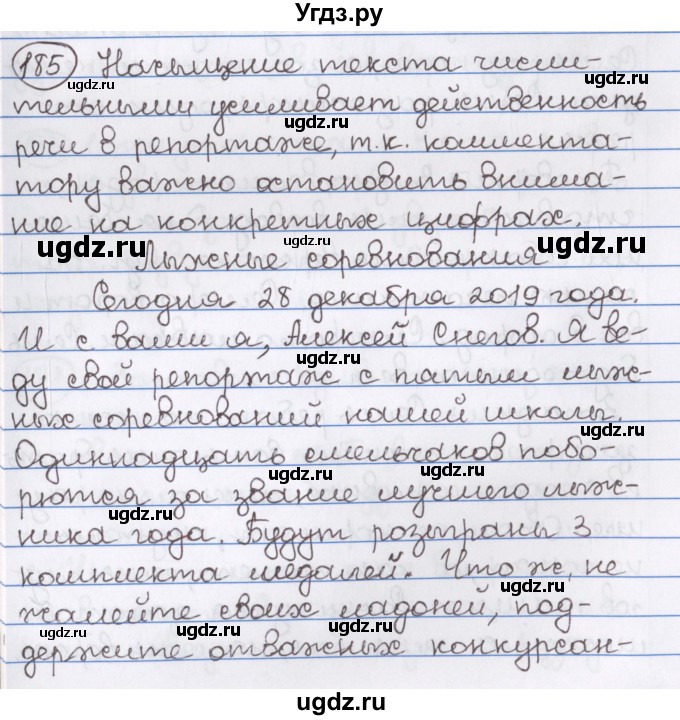 Угдз.ру
185 Насыщение текста числи-
тельными усиливает действенность
речи в репортаже, т.к. коммента-
тору важно остановить внима-
ние на конкретных цифрах.
Лыжные соревнования
Сегодня 28 декабря 2019 года.
И с вами я, Алексей Снегов. Я ве-
ду свой репортаж с пятых лыж-
ных соревнований нашей школы.
Одиннадцать смельчаков побо-
рются за звание лучшего лыж-
ника года. Будут розыграны 3
комплекта медалей. Что ж, не
жалейте своих ладоней, под-
держите отважных конкурсан-
ugdz.ru